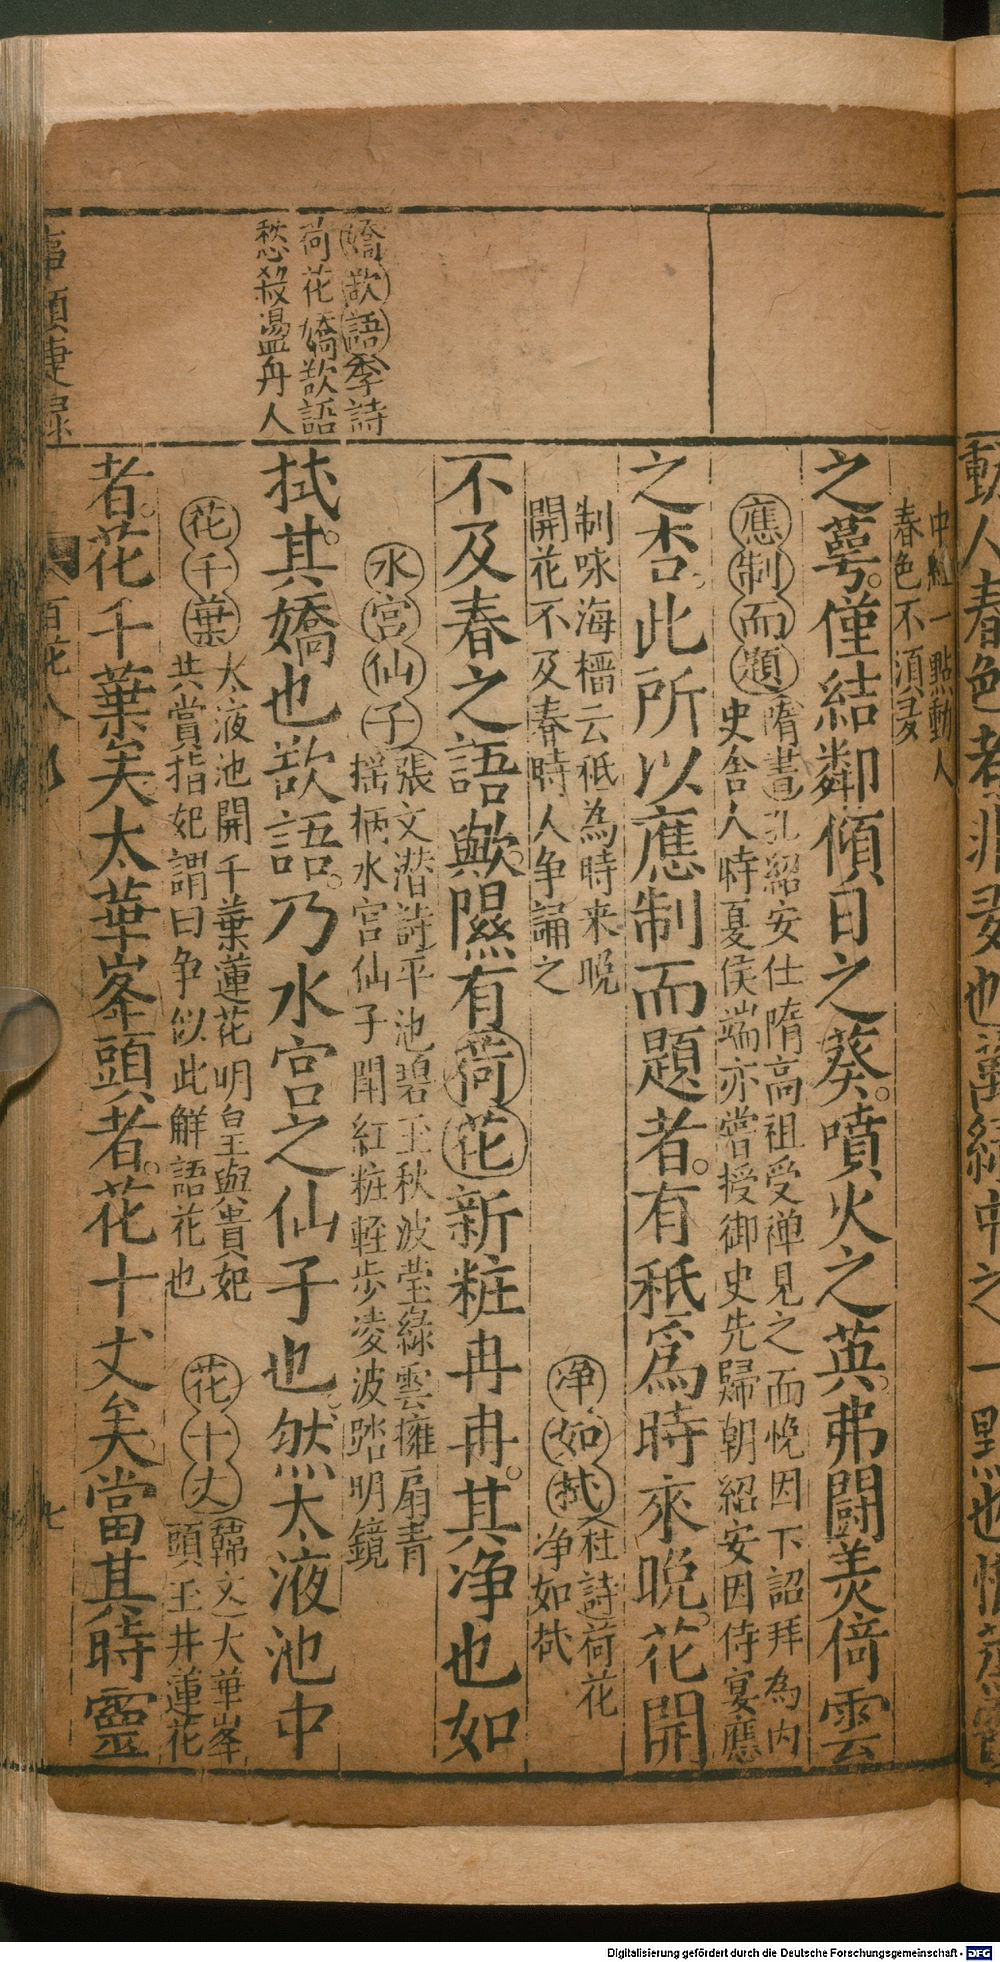 動人春色者非多也萬綠中之一點也
中紅一點動人
春色不湏多
之萼。僅結鄰傾日之葵。噴火之英。弗鬪羙倍雲
應制而題(隋書)孔紹安仕隋高祖受禅見之而悅因下詔拜為内
史舍人時夏侯端亦嘗授御史先歸朝紹安因侍宴應
之杏。此所以應制而題者。有秪爲時來晚。花開
制咏海榴云秪為時来晚
開花不及春時人争誦之
净如拭(杜詩)荷花
净如拭
不及春之語歟。隰有荷花新粧冉冉。其净也如
嬌欲語李詩
荷花嬌欲語
愁殺盪舟人
水宫仙子(張文潜詩)平池碧玉秋波莹綠雲擁扇青
揺柄水宫仙子鬪紅粧輊步凌波踏明鏡
拭。其嬌也欲語。乃水宫之仙子也。然太液池中
花千葉太液池開千葉蓮花明皇與貴妃
共賞指妃謂曰争似此解語花也
花十丈(韓文)大華峯
頭玉井蓮花
者。花千葉矣。太華峯頭者。花十丈矣。當其時靈
事類捷録
百花
七
Digitalisierung gefördert durch die Deutsche Forschungsgemeinschaft - DFG